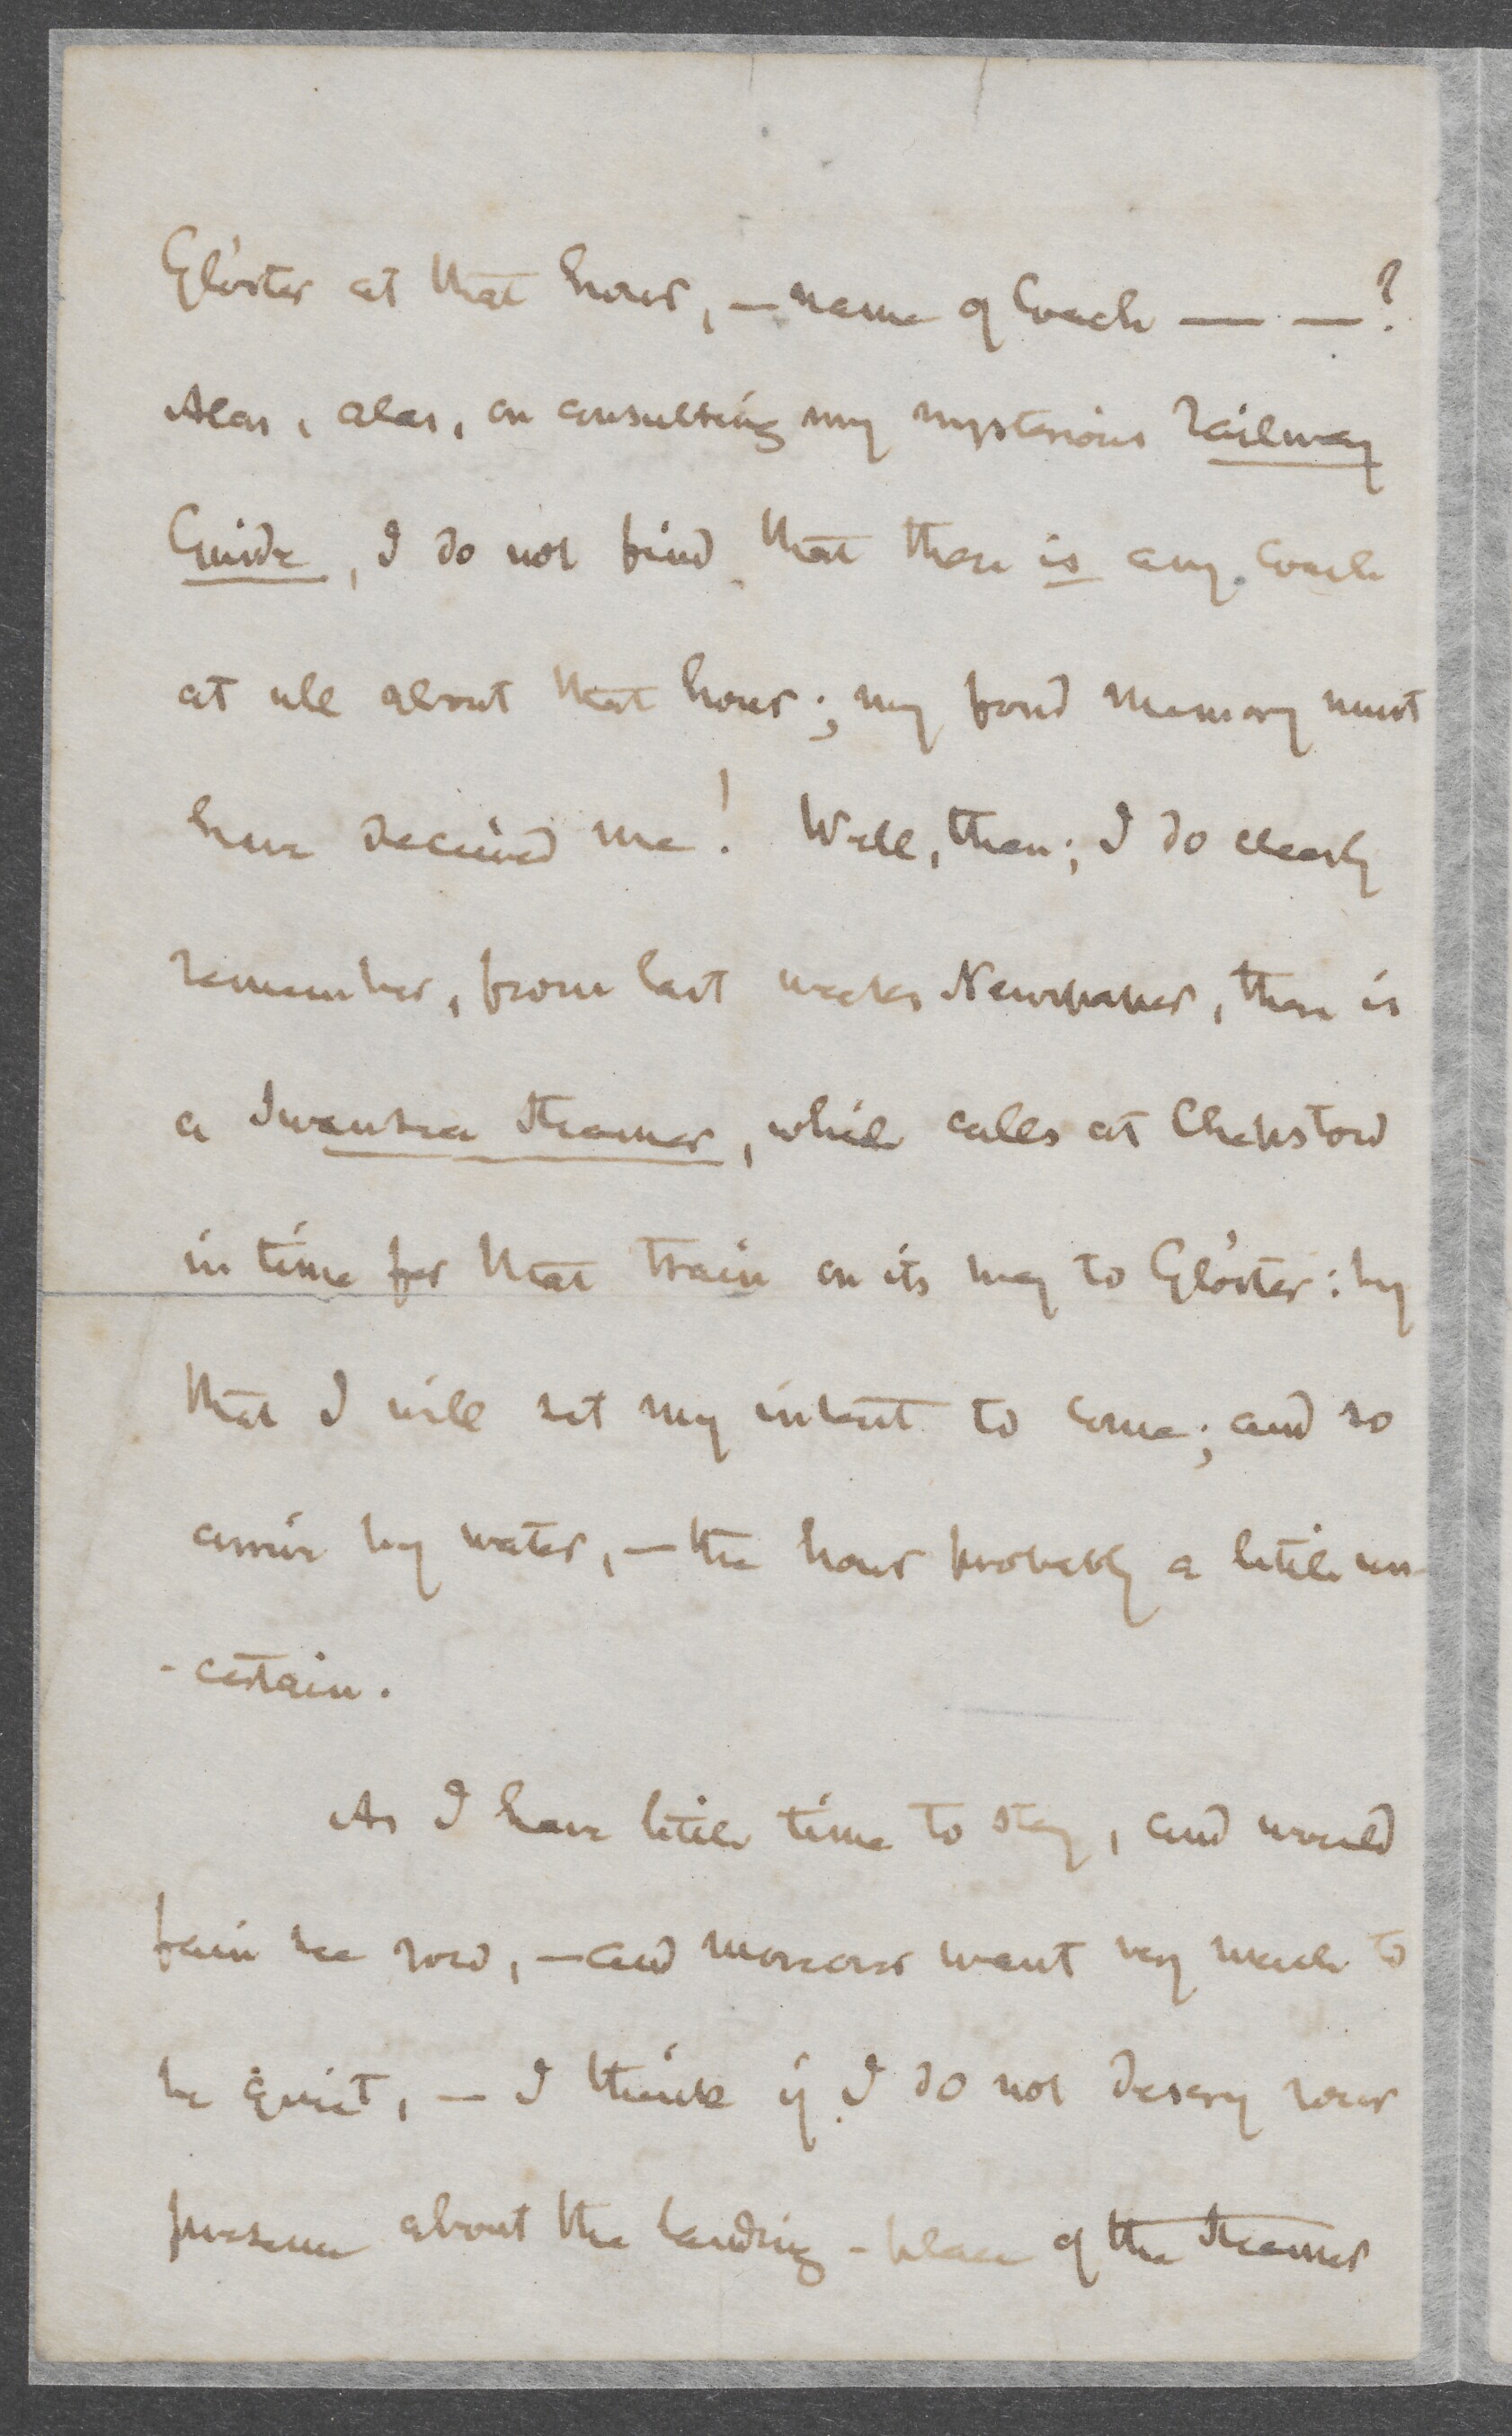 Glo'ster at that hour, — name of Coach — — ?
Alas, alas, on consulting my mysterious Railway
Guide, I do not find that there is any Coach
at all about that hour; my fond memory must
have deceived me! Well, then; I do clearly
remember, from last weeks Newspaper, there is
a Swansea Steamer, which calls at Chepstow
in time for that train on its way to Glo'ster: by
that I will set my intent to come; and so
arrive by water, — the hour probably a little un-
- certain.
As I have little time to stay, and would
fain see you, — and moreover want very much to
be quiet, — I think if I do not descry your
presence about the landing-place of the Steamer